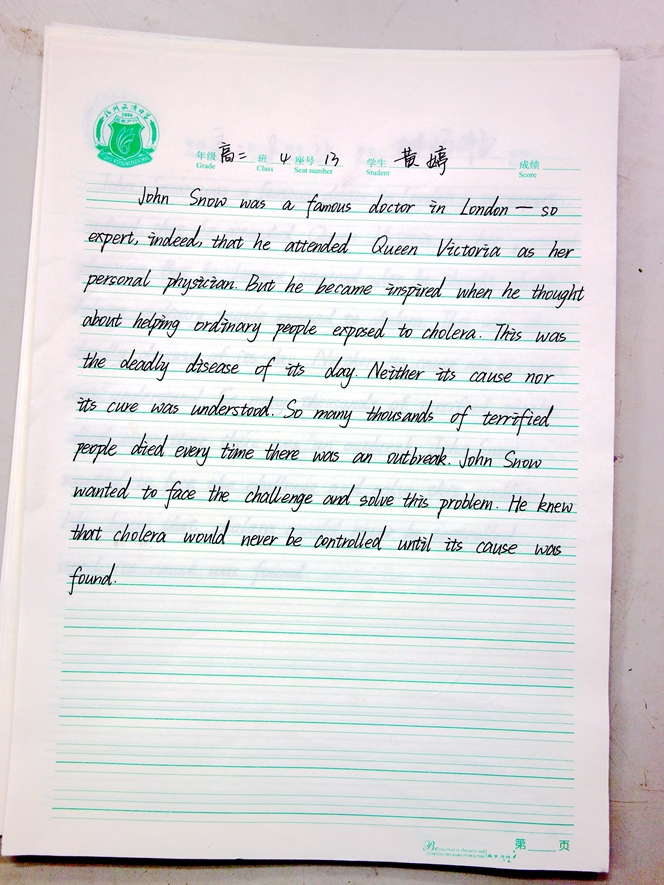 年级 高二 班 4 座号 13 学生 黄婷 成绩
Grade Class Seat number Student Score
John Snow was a famous doctor in London — so
expert, indeed, that he attended Queen Victoria as her
personal physician. But he became inspired when he thought
about helping ordinary people exposed to cholera. This was
the deadly disease of its day. Neither its cause nor
its cure was understood. So many thousands of terrified
people died every time there was an outbreak. John Snow
wanted to face the challenge and solve this problem. He knew
that cholera would never be controlled until its cause was
found.
第 页